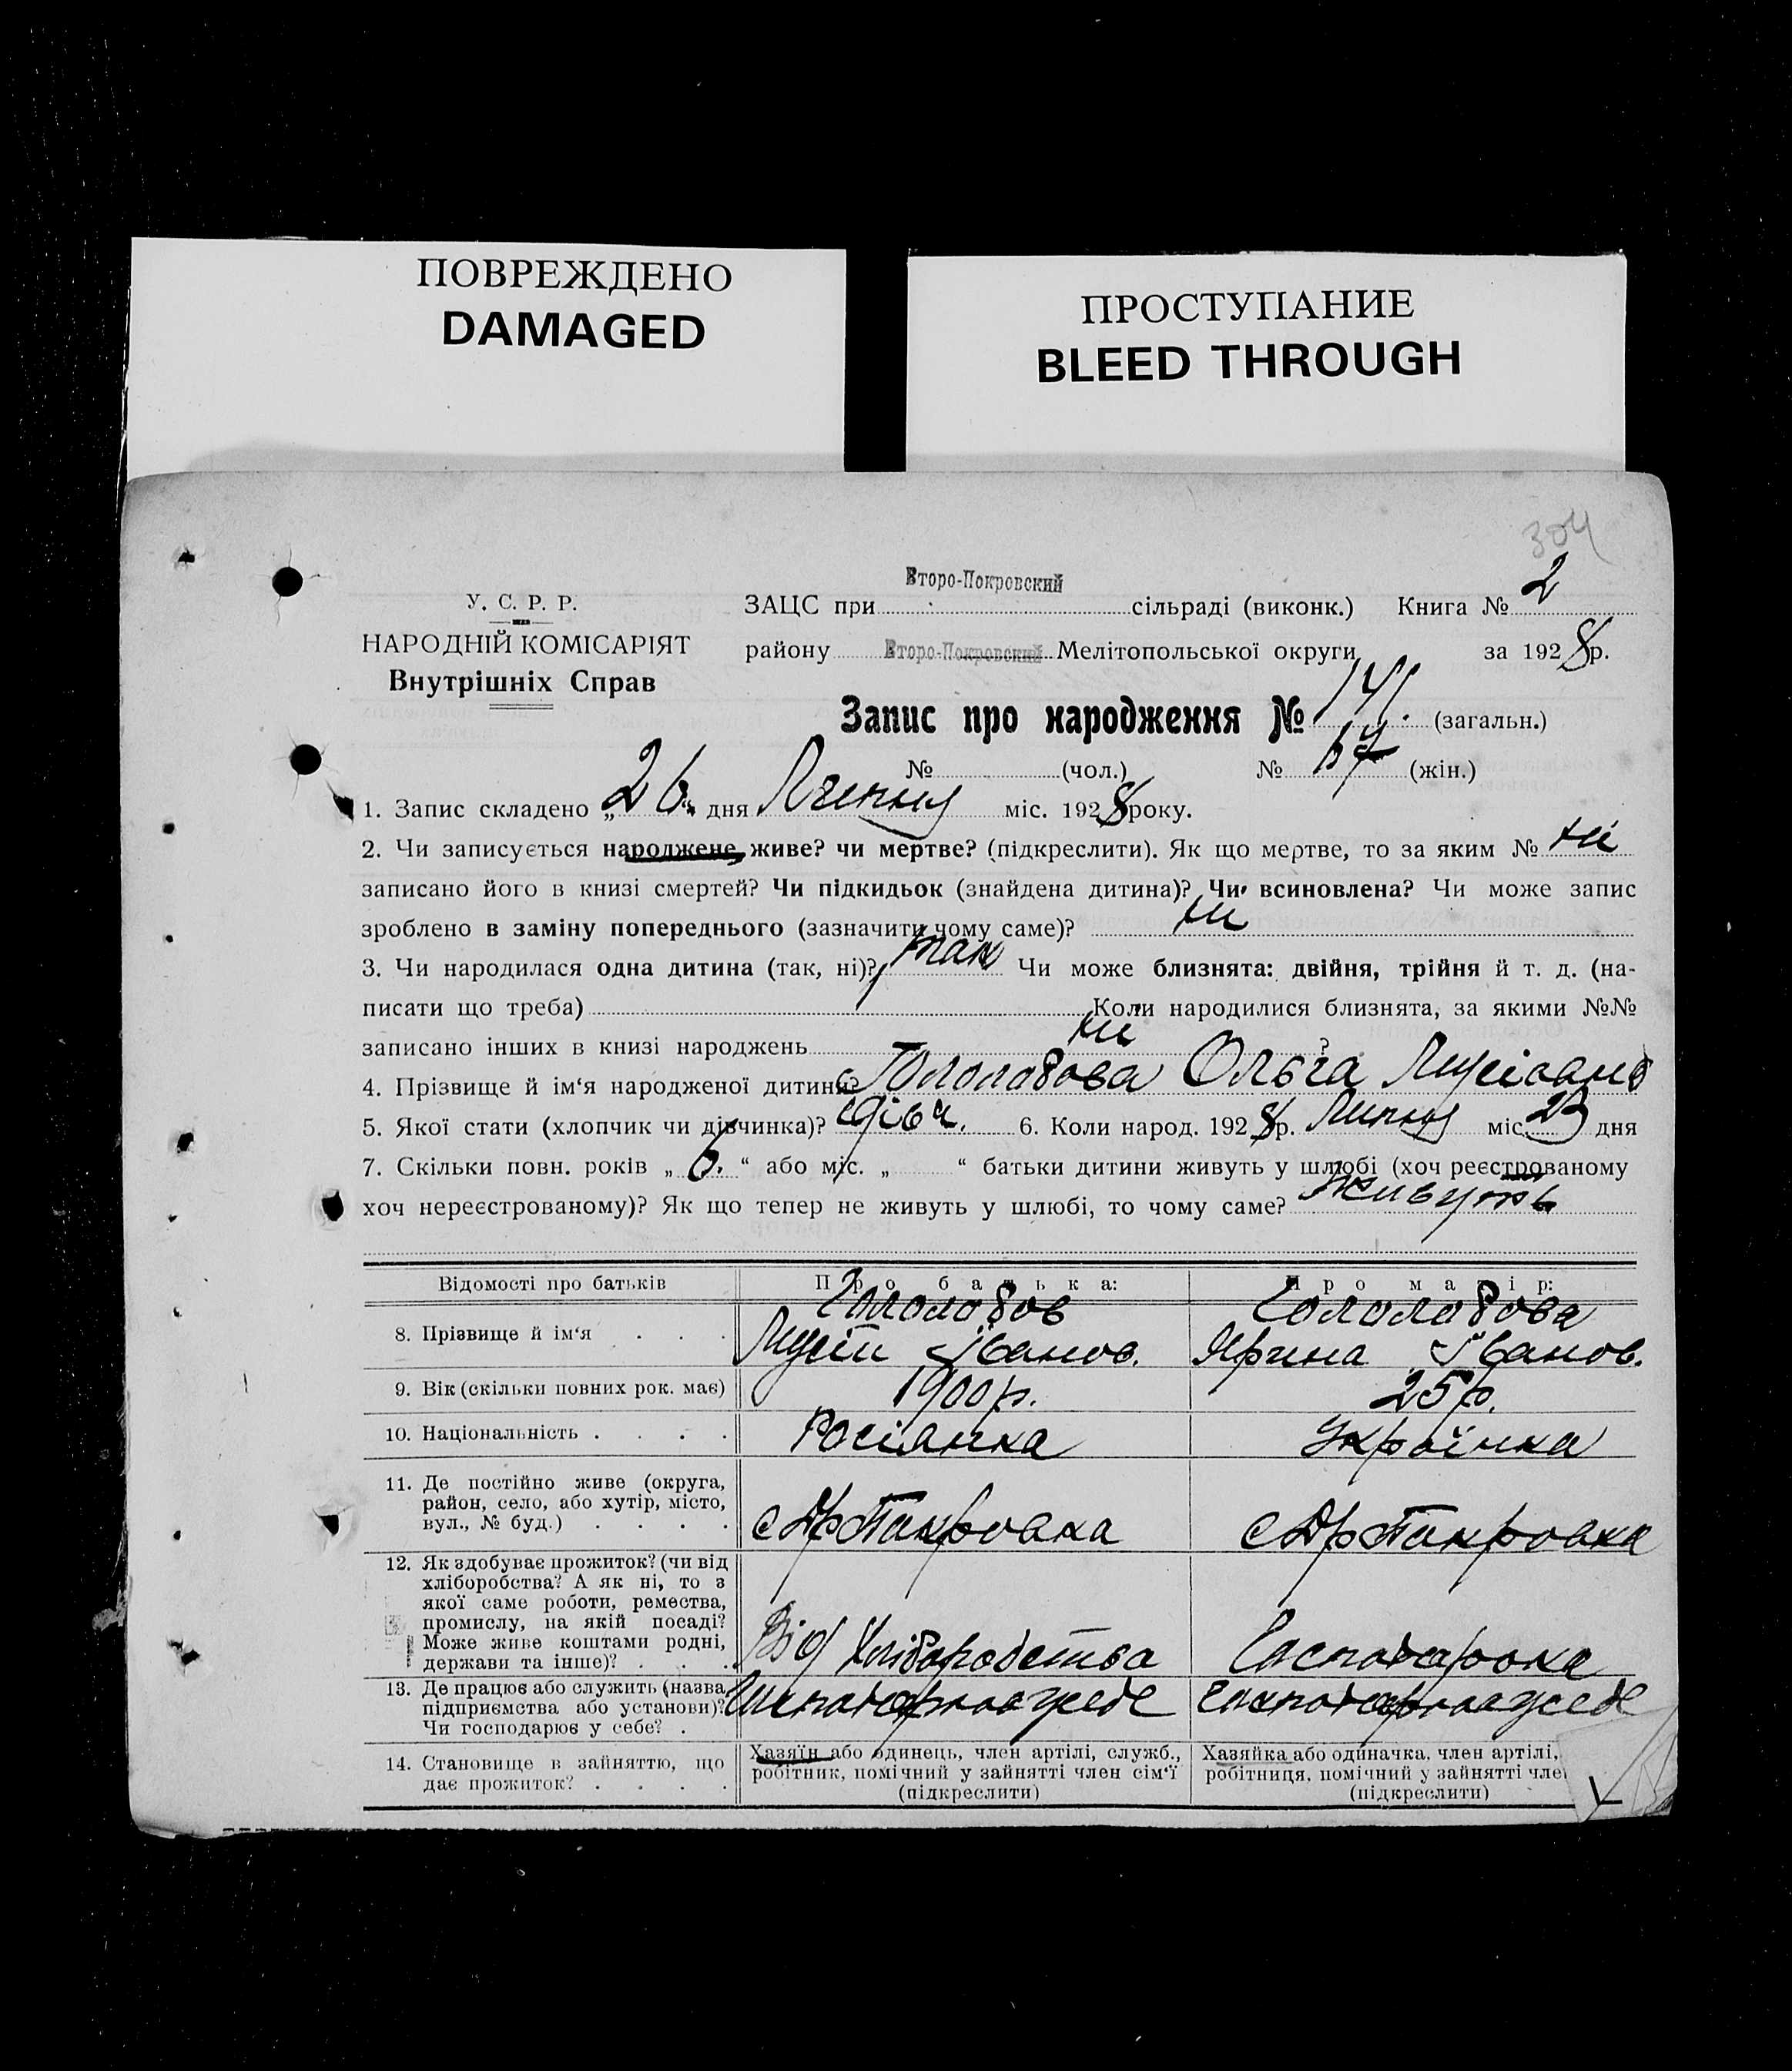 ПОВРЕЖДЕНО
DAMAGED
ПРОСТУПАНИЕ
BLEED THROUGH
304
У. С. Р. Р.
НАРОДНІЙ КОМІСАРІЯТ
Внутрішніх Справ
ЗАЦС при Второ-Покровский сільраді (виконк.) Книга № 2
району Второ-Покровский Мелітопольської округи за 1928 р.
Запис про народження № 141. (загальн.)
№ (чол.) № (жін.)
1. Запис складено „26“ дня Липня міс. 1928 року.
2. Чи записується народжене живе? чи мертве? (підкреслити). Як що мертве, то за яким № ні
записано його в книзі смертей? Чи підкидьок (знайдена дитина)? Чи всиновлена? Чи може запис
зроблено в заміну попереднього (зазначити чому саме)? ні
3. Чи народилася одна дитина (так, ні)? так Чи може близнята: двійня, трійня й т. д. (на-
писати що треба) Коли народилися близнята, за якими №№
записано інших в книзі народжень ні ?
4. Прізвище й ім‘я народженої дитини? Гололобова Ольга Мусієвна
5. Якої стати (хлопчик чи дівчинка)? дівч. 6. Коли народ. 1928 р. Липня міс. 23 дня
7. Скільки повн. років „ 6. “ або міс. „ “ батьки дитини живуть у шлюбі (хоч реєстрованому
хоч нереєстрованому)? Як що тепер не живуть у шлюбі, то чому саме? Живуть
Відомості про батьків Про батька: Про матір:
8. Прізвище й ім‘я Гололобов Гололобова
Мусій Іванов. Ярина Іванов.
9. Вік (скільки повних рок. має) 1900 р. 25 р.
10. Національність Росіянка Українка
11. Де постійно живе (округа,
район, село, або хутір, місто,
вул., № буд.) с Др Покровка с Др Покровка
12. Як здобуває прожиток? (чи від
хліборобства? А як ні, то з
якої саме роботи, ремества,
промислу, на якій посаді?
Може живе коштами родні,
держави та інше)? Від Хліборобства Господарока
13. Де працює або служить (назва
підприємства або установи)?
Чи господарює у себе?
14. Становище в зайняттю, що
дає прожиток?
Хазяїн або одинець, член артілі, служб.,
робітник, помічний у зайнятті член сім‘ї
(підкреслити)
Хазяйка або одиначка, член артілі,
робітниця, помічний у зайнятті
(підкреслити)